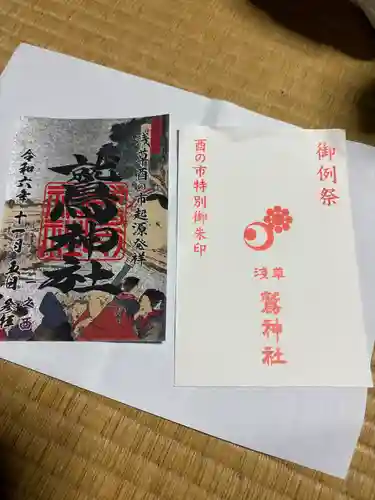 浅草酉の市起源発祥
鷲神社
令和六年十一月五日
一之酉
御例祭
酉の市特別御朱印
浅草
鷲神社